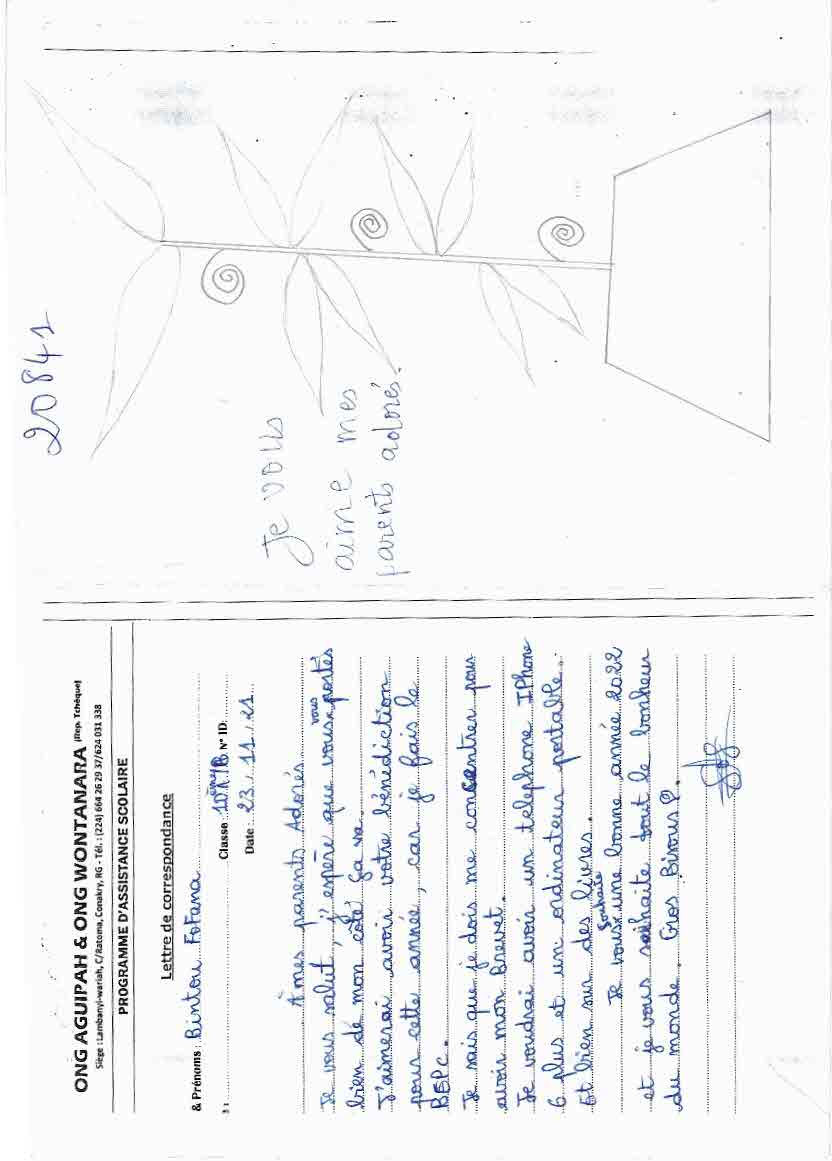 ONG AGUIPAH & ONG WONTANARA (Rep. Tchèque)
Siège : Lambanyi-wariah, C/Ratoma, Conakry, RG - Tél. : (224) 664 26 29 37/624 031 338
PROGRAMME D'ASSISTANCE SCOLAIRE
Lettre de correspondance
& Prénoms : Bintou Fofana
Classe : 10èm/B N° ID:
Date : 23/11/21
À mes parents Adorés
Je vous salut, j'espère que vous vous portés
bien de mon côté ça va.
J'aimerai avoir votre bénédiction
pour cette année, car je fais le
BEPC.
Je sais que je dois me concentrer pour
avoir mon Brevet.
Je voudrai avoir un telephone IPhone
6 plus et un ordinateur portable.
Et bien sur des livres.
Je vous souhaite une bonne année 2022
et je vous souhaite tout le bonheur
du monde. Gros Bisous
20841
Je vous
aime mes
parents adorés.